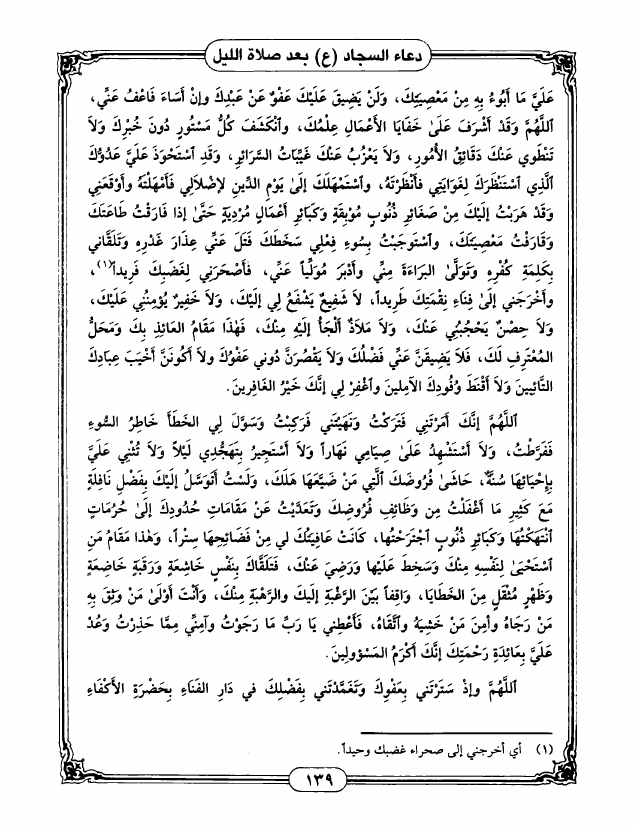 دعاء السجاد (ع) بعد صلاة الليل
عَلَيَّ مَا أَبُوءُ بِهِ مِنْ مَعْصِيَتِكَ، وَلَنْ يَضِيقَ عَلَيْكَ عَفْوٌ عَنْ عَبْدِكَ وإنْ أَسَاءَ فَاعْفُ عَنِّي،
اَللَّهُمَّ وَقَدْ أَشْرَفَ عَلَىٰ خَفَايَا الأَعْمَالِ عِلْمُكَ، وٱنْكَشَفَ كُلُّ مَسْتُورٍ دُونَ خُبْرِكَ وَلاَ
تَنْطَوِي عَنْكَ دَقَائِقُ الأُمُورِ، وَلاَ يَعْزُبُ عَنْكَ غَيِّبَاتُ السَّرَائِرِ، وَقَدِ ٱسْتَحْوَذَ عَلَيَّ عَدُوُّكَ
ٱلَّذِي ٱسْتَنْظَرَكَ لِغَوَايَتِي فأَنْظَرْتَهُ، وٱسْتَمْهَلَكَ إلىٰ يَوْمِ الدِّينِ لإِضْلاَلِي فَأَمْهَلْتَهُ وأَوْقَعَنِي
وَقَدْ هَرَبْتُ إلَيْكَ مِنْ صَغَائِرِ ذُنُوبٍ مُوبِقَةٍ وَكَبَائِرِ أَعْمَالٍ مُرْدِيَةٍ حَتَّىٰ إذا فَارَقْتُ طَاعَتَكَ
وَقَارَفْتُ مَعْصِيَتَكَ، وٱسْتَوجَبْتُ بِسُوءِ فِعْلِي سَخَطَكَ فَتَلَ عَنِّي عِذَارَ غَدْرِهِ وَتَلَقَّاني
بِكَلِمَةِ كُفْرِهِ وَتَوَلَّى البَرَاءَةَ مِنِّي وأدْبَرَ مُوَلِّياً عَنِّي، فَأَصْحَرَنِي لِغَضَبِكَ فَرِيداً(١)،
وأَخْرَجَنِي إلىٰ فِنَاءِ نِقْمَتِكَ طَرِيداً، لاَ شَفِيعٌ يَشْفَعُ لِي إلَيْكَ، وَلاَ خَفِيرٌ يُؤمِنُنِي عَلَيْكَ،
وَلاَ حِصْنٌ يَحْجُبُنِي عَنْكَ، وَلاَ مَلاَذٌ أَلْجَأُ إلَيْهِ مِنْكَ، فَهٰذَا مَقَامُ العَائِذِ بِكَ وَمَحَلُّ
المُعْتَرِفِ لَكَ، فَلاَ يَضِيقَنَّ عَنِّي فَضْلُكَ وَلاَ يَقْصُرَنَّ دُونِي عَفْوُكَ ولاَ أَكُونَنَّ أخْيَبَ عِبَادِكَ
التَّائِبِينَ وَلاَ أَقْنَطَ وُفُودِكَ الآمِلِينَ وٱغْفِرْ لِي إنَّكَ خَيْرُ الغَافِرِينَ.
اَللَّهُمَّ إنَّكَ أمَرْتَنِي فَتَرَكْتُ وَنَهَيْتَنِي فَرَكِبْتُ وَسَوَّلَ لِي الخَطَأَ خَاطِرُ السُّوءِ
فَفَرَّطْتُ، وَلاَ أَسْتَشْهِدُ عَلَىٰ صِيَامِي نَهَاراً وَلاَ أَسْتَجِيرُ بِتَهَجُّدِي لَيْلاً وَلاَ تُثْنِي عَلَيَّ
بِإِحْيَائِهَا سُنَّةٌ، حَاشَىٰ فُرُوضَكَ ٱلَّتِي مَنْ ضَيَّعَهَا هَلَكَ، وَلَسْتُ أَتَوَسَّلُ إلَيْكَ بِفَضْلِ نَافِلَةٍ
مَعَ كَثِيرِ مَا أَغْفَلْتُ مِن وَظَائِفِ فُرُوضِكَ وَتَعَدَّيْتُ عَنْ مَقَامَاتِ حُدُودِكَ إلىٰ حُرُمَاتٍ
ٱنْتَهَكْتُهَا وَكَبَائِرِ ذُنُوبٍ ٱجْتَرَحْتُهَا، كَانَتْ عَافِيَتُكَ لِي مِنْ فَضَائِحِهَا سِتْراً، وَهٰذا مَقَامُ مَنِ
ٱسْتَحْيَىٰ لِنَفْسِهِ مِنْكَ وَسَخِطَ عَلَيْها وَرَضِيَ عَنْكَ، فَتَلَقَّاكَ بِنَفْسٍ خَاشِعَةٍ وَرَقَبَةٍ خَاضِعَةٍ
وَظَهْرٍ مُثْقَلٍ مِنَ الخَطَايَا، وَاقِفاً بَيْنَ الرَّغْبَةِ إلَيكَ والرَّهْبَةِ مِنْكَ، وَأَنْتَ أَوْلَىٰ مَنْ وَثِقَ بِهِ
مَنْ رَجَاهُ وأمِنَ مَنْ خَشِيَهُ وٱتَّقَاهُ، فَأَعْطِنِي يَا رَبِّ مَا رَجَوْتُ وآمِنِّي مِمَّا حَذِرْتُ وَعُدْ
عَلَيَّ بِعَائِدَةِ رَحْمَتِكَ إنَّكَ أَكْرَمُ المَسْؤولِينَ.
اَللَّهُمَّ وإذ سَتَرْتَنِي بِعَفْوِكَ وَتَغَمَّدْتَنِي بِفَضْلِكَ في دَارِ الفَنَاءِ بِحَضْرَةِ الأكْفَاءِ
(١) أي أخرجني إلى صحراء غضبك وحيداً.
١٣٩